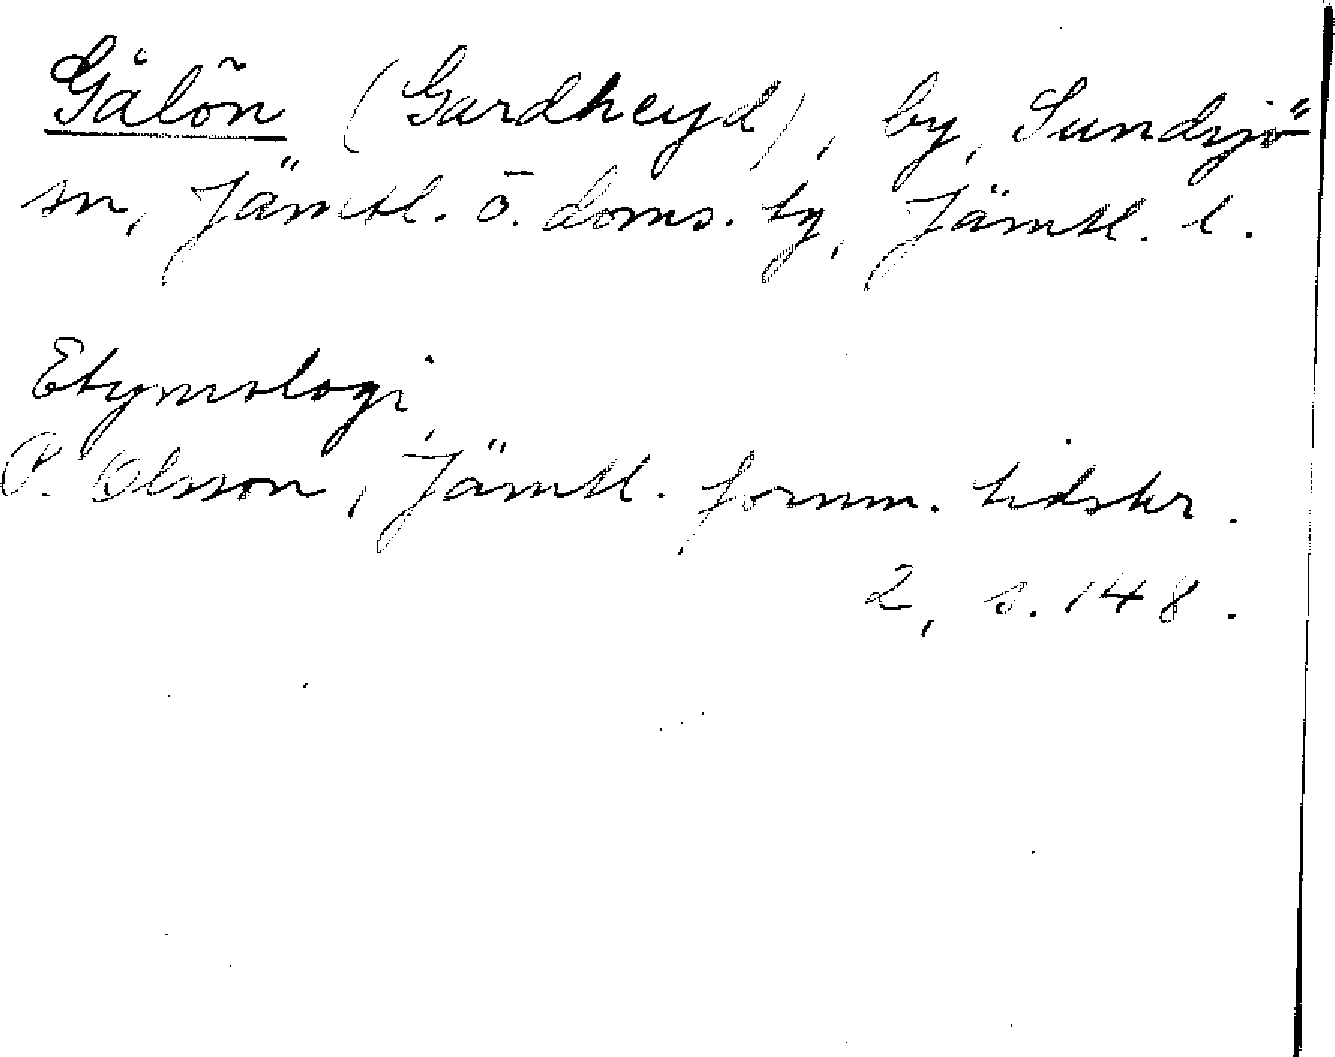 Gålön (Gardheyd), by, Sundsjö
sn, Jämtl. ö. doms. tg, Jämtl. l.
Etymologi
P. Olsson, Jämtl. fornm. tidskr.
2, s. 148.